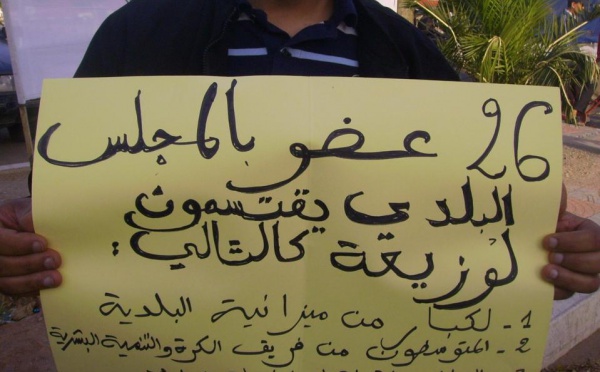 26 عضو بالمجلس
البلدي يقتسمون
لوزيعة كالتالي :
1 - لكبار من ميزانية البلدية
2 - المتوسطون من فريق الكرة والتنمية البشرية